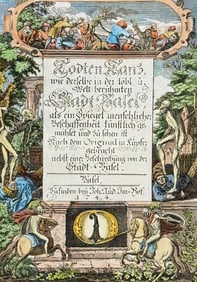 Todten Tanz,
wie derselbe in der löbl. u.
Welt-berühmten
Stadt Basel,
als ein Spiegel menschlicher
Beschaffenheit künstlich ge
mahlet und zu sehen ist.
Nach dem Original in Kupfer
gebracht
nebst einer Beschreibung von der
Stadt-Basel.
Basel,
Zu finden bey Joh. Rud. Im-Hof.
1744.